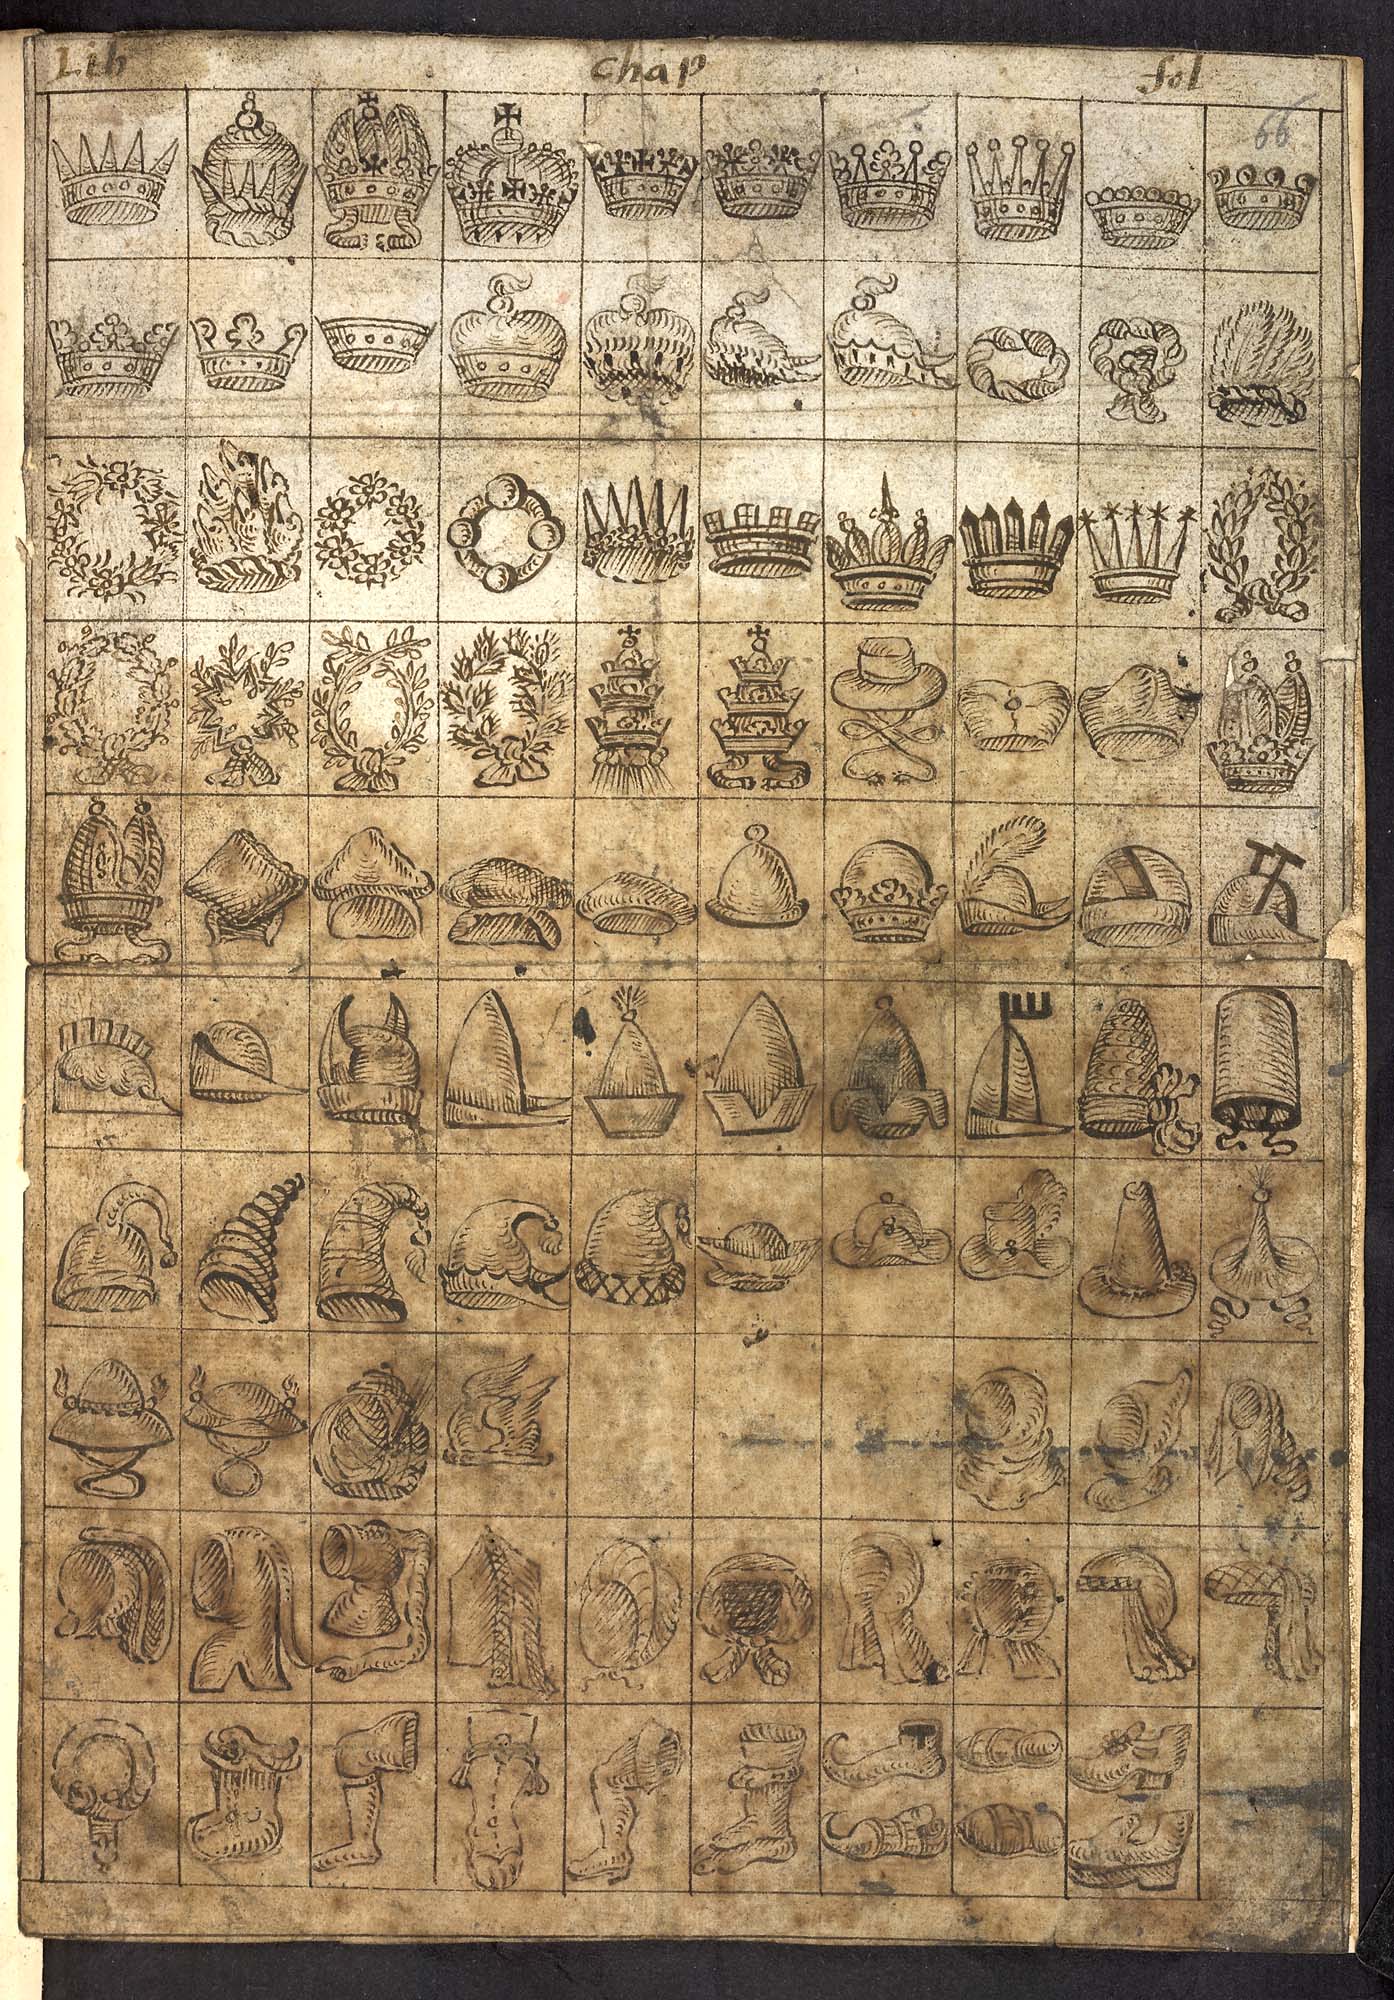 Lib Chap fol
66